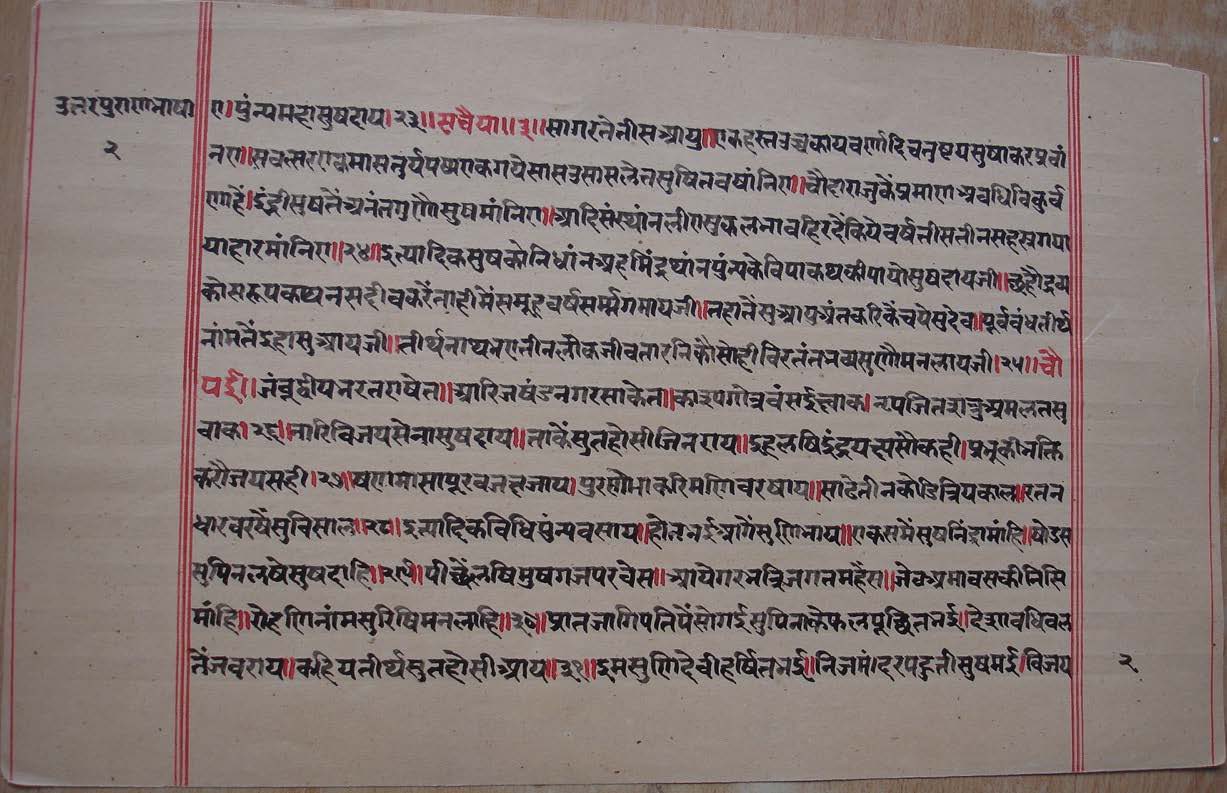 उत्तरपुराणभाषा
२
ए।पुंन्यमहासुषदाय।२३॥सवैया॥३॥सागरतेतीसआयु॥एकहस्तउच्चकायवर्णादिचतुष्टयसुषाकरप्रवां
नए॥सवत्सर मासतुर्यपष्यएकगयेसासउसासलेतसुषितवषांनिए॥चौदाराजुकेप्रमाणअवधिविकुर्व
णहै।इंद्रीसुषतैंअनंतगुणौसुषमांनिए॥आदिसंस्थांनलीएसुकललेस्यावहिरदेंकियेवर्षतीसतीनसहस्रगया
याहारमांनिए॥२४॥इत्यादिकसुषकोनिधांनअहमिंद्रथांनपुंन्यकेविपाकथकीपायोसुषदायजी॥छहौद्रव्य
कोसरूपकथनसदीवकरैंताहीमेंसमूहवर्षसर्म्मगमायजी॥तहातैंसुआयुअंतकरिकैंचयेसुदेव।पूर्वबंधतीर्थ
नांमतैंइहासुआयजी॥तीर्थनाथभएतीनलोकजीवतारनिकौसोहीविरतंतभव्यसुणौमनलायजी।२५॥चौ
पई॥जंबूद्वीपभरतएषेत॥आरिजषंडनगरसाकेत॥कास्यपगोत्रवंसईक्ष्वाक।नृपजितशत्रुअमलतसु
वाक।२६॥नारिविजयसेनासुषदाय॥ताकेंसुतहोसीजिनराय॥इहलषिइंद्रयक्ष्यसौंकही।प्रभुकीभक्ति
करौजयसही।२७॥षणमासापूरवजनजाय।पुरसोभाकरिमणिवरषाय॥साढेतीनकोडित्रियकाल॥रतन
धारवरषैंसुविसाल॥२८॥इत्यादिकविधिपुंन्यवसाय।होतभईआगैंसुणिभाय॥एकसमैंसुषनिंद्रामांहि॥षोडस
सुपिनलषेसुषदाहि॥२९॥पीछैंलषिमुषगजपरवेस॥आयेगरभत्रिजगतमहेस॥जेठअमावसकीनिसि
मांहि॥रोहणिनांमसुरिषिमनलाहि॥३०॥प्रातजागिपतिपैंसोगईसुपिनाकोफलपूछितभई॥देशावधिबल
तैंजबराय॥कहियतीर्थसुतहोसीआय॥३१॥इमसुणिदेवीहर्षितभई॥निजमंदरपहुतीसुषमई।विजय
२